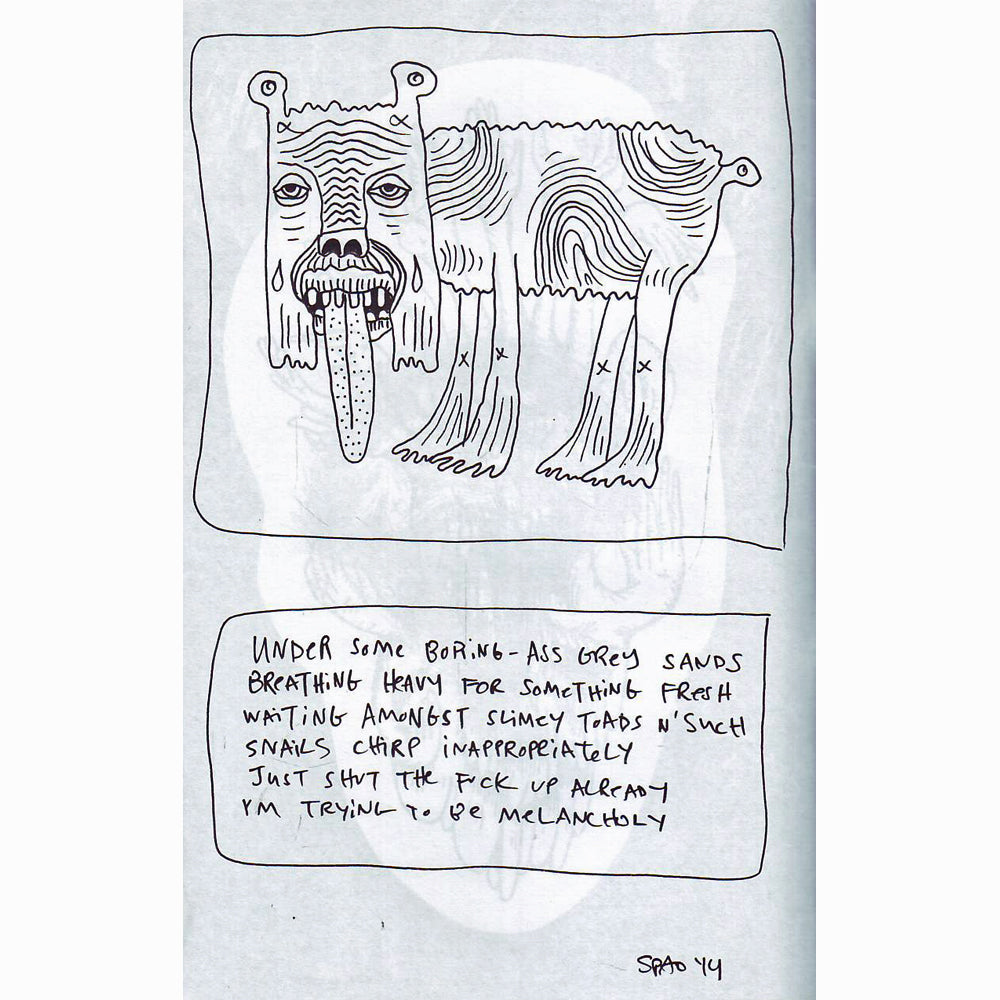 UNDER SOME BORING-ASS GREY SANDS
BREATHING HEAVY FOR SOMETHING FRESH
WAITING AMONGST SLIMEY TOADS N' SUCH
SNAILS CHIRP INAPPROPRIATELY
JUST SHUT THE FUCK UP ALREADY
I'M TRYING TO BE MELANCHOLY
SPAO '14